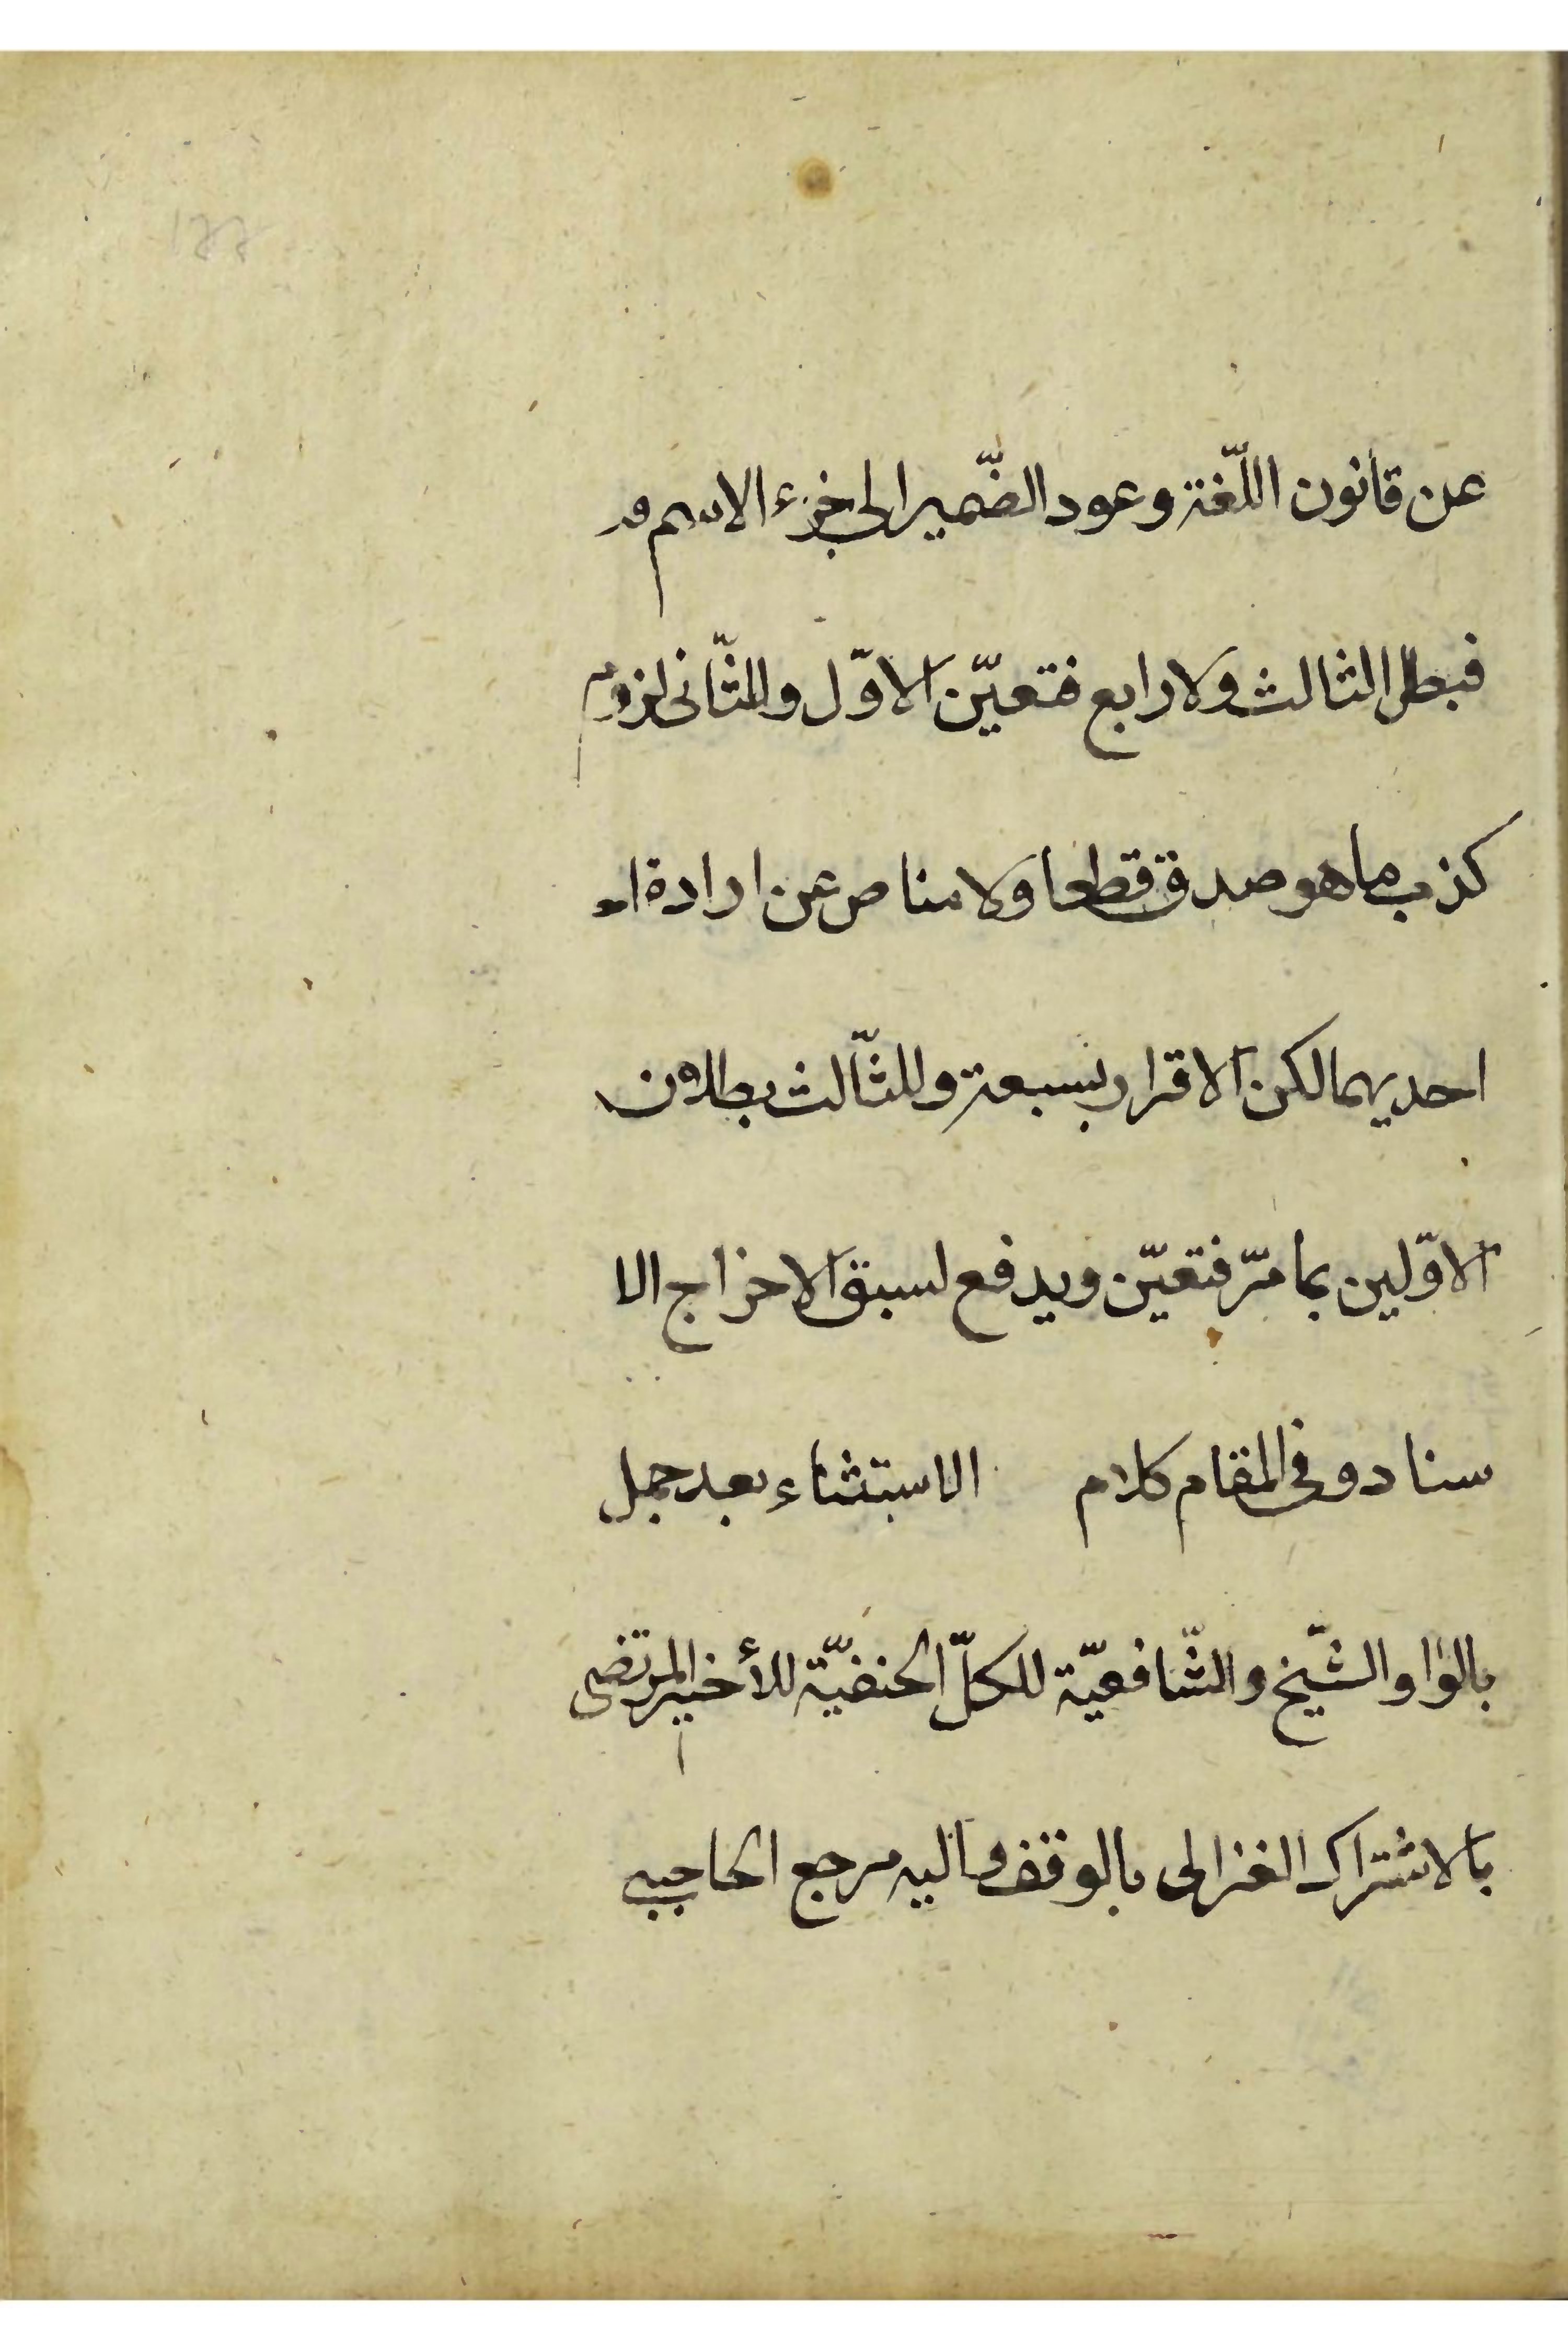 عن قانون اللّغة وعود الضّمير الى جزء الاسم
فبطل الثالث ولا رابع فتعيّن الاوّل وللثّانى لزوم
كذب ما هو صدق قطعا ولا مناص عن ارادة
احديهما لكن الاقرار بسبعة وللثّالث بطلان
الاوّلين بما مرّ فتعيّن ويدفع لسبق الاخراج الا
سناد وفى المقام كلام الاستثناء بعد جمل
بالواو الشّيخ والشّافعيّة للكلّ الحنفيّة للأخير المرتضى
بالاشتراك الغزالى بالوقف واليه مرجع الحاجبى